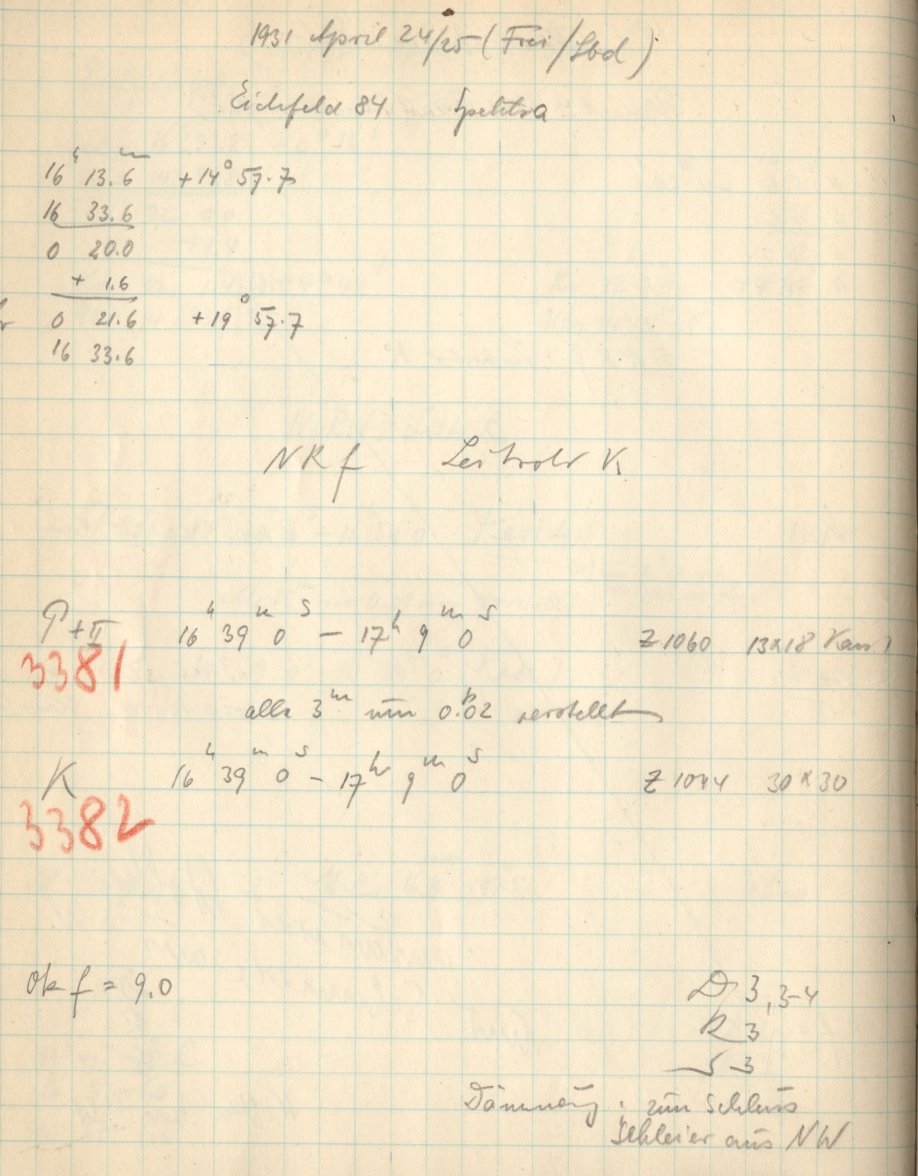 1931 April 24/25 (Frei/Sbd)
Eichfeld 84 Spektra
16h 13.6m +14° 57.7
16 33.6
0 20.0
+ 1.6
0 21.6 +19° 57.7
16 33.6
NRf K
P+II 16h 39m 0s – 17h 9m 0s Z 1060 13x18
3381
alle 3m um 0.02 verstellt
K 16h 39m 0s – 17h 9m 0s Z 1044 30x30
3382
Ok f = 9.0
D 3, 3-4
R 3
S 3
Dämmerung; zum Schluss
Schleier aus NW